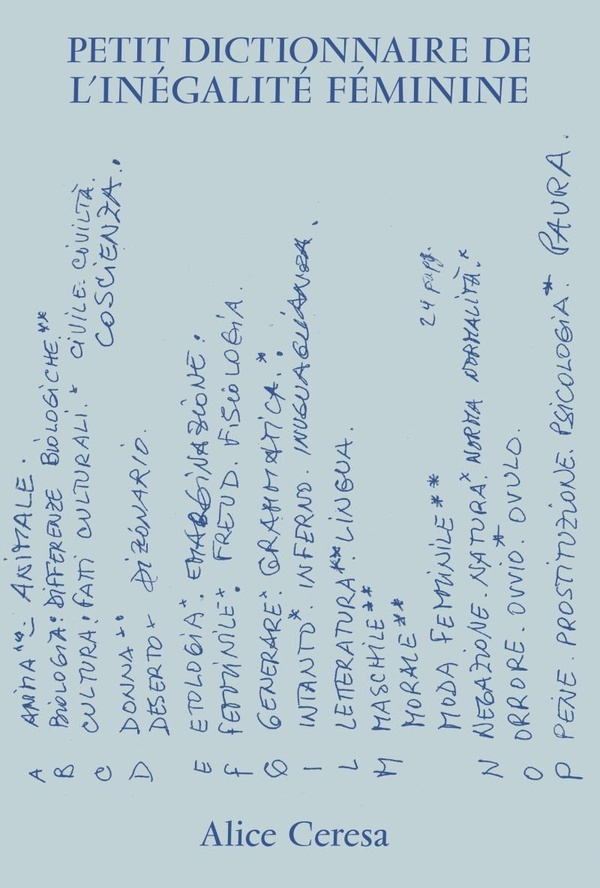 PETIT DICTIONNAIRE DE
L'INÉGALITÉ FÉMININE
A ANIMA** ANIMALE.
B BIOLOGIA. DIFFERENZE BIOLOGICHE**
C CULTURA. FATTI CULTURALI.* CIVILE. CIVILTÀ.
COSCIENZA.
D DONNA** DIZIONARIO.
DESERTO*
E ETOLOGIA*. EMARGINAZIONE.
F FEMMINILE. FREUD. FISIOLOGIA.
G GENERARE* GRAMMATICA.*
I INTANTO* INFERNO. INUGUAGLIANZA.
L LETTERATURA** LINGUA.
M MASCHILE**
MORALE**
MODA FEMMINILE** 24
N NEGAZIONE. NATURA* NORMA NORMALITÀ.*
O ORRORE. OVVIO.* OVULO.
P PENE. PROSTITUZIONE. PSICOLOGIA* PAURA.
Alice Ceresa